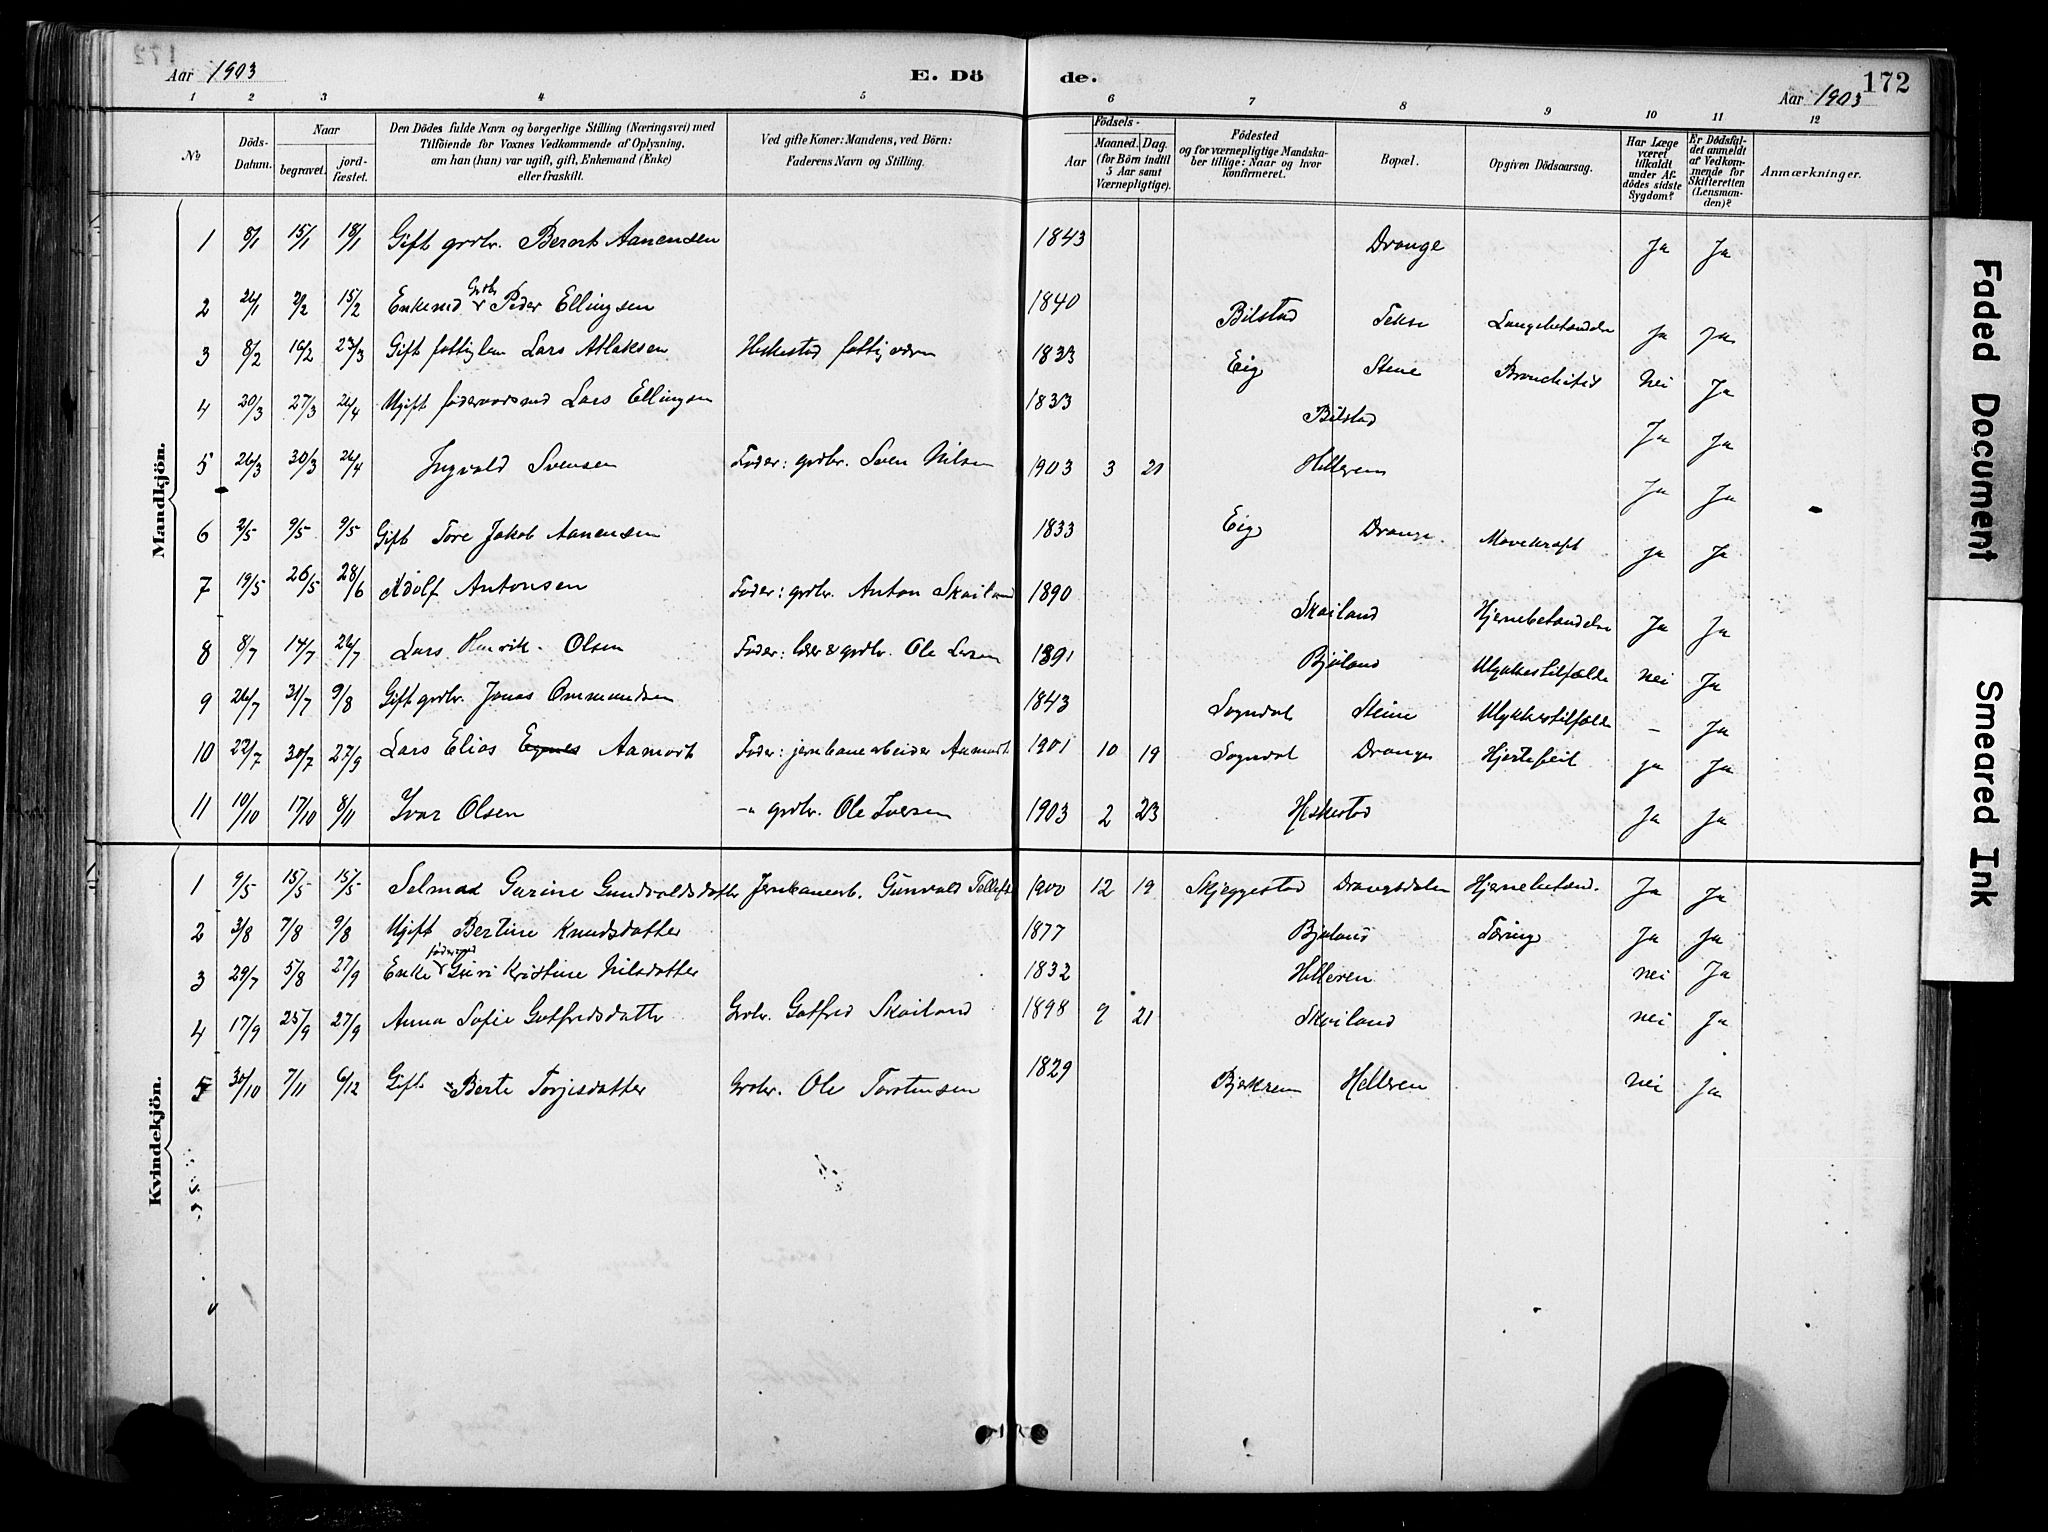 Aar 1903 E. Dö de. Aar 1903 172
1 2 3 4 5 6 7 8 9 10 11 12
No Döds-Datum. Naar begravet. jord-fæstet. Den Dödes fulde Navn og borgerlige Stilling (Næringsvei) med Tilföiende for Voxnes Vedkommende af Oplysning, om han (hun) var ugift, gift, Enkemand (Enke) eller fraskilt. Ved gifte Koner: Mandens, ved Börn: Faderens Navn og Stilling. Födsels- Aar Maaned. Dag. (for Börn indtil 5 Aar samt Værnepligtige). Födested og for værnepligtige Mandskaber tillige: Naar og hvor konfirmeret. Bopæl. Opgiven Dödsaarsag. Har Læge været tilkaldt under Afdödes sidste Sygdom? Er Dödsfaldet anmeldt af Vedkommende for Skifteretten (Lensmanden)? Anmærkninger.
Mandkjön.
1 8/1 15/1 18/1 Gift grdbr. Berort Aanensen 1843 Drange Ja Ja
2 21/1 2/2 15/2 Enkemd Grdb Peder Ellingsen 1840 Bilstad Tekse Lungebetændelse Ja Ja
3 8/2 19/2 23/3 Gift fattiglem Lars Atlaksen Heskestad fattigvæsen 1833 Eig Steine Bronchitis Nei Ja
4 20/3 27/3 26/4 Ugift föderaadsmd Lars Ellingsen 1833 Bilstad Ja Ja
5 26/3 30/3 26/4 Ingvald Svensen Fader: grdbr. Sven Nilsen 1903 3 21 Helleren Ja Ja
6 2/5 9/5 9/5 Gift Tore Jakob Aanensen 1833 Eig Drange Mavekræft Ja Ja
7 19/5 26/5 28/6 Adolf Antonsen Fader: grdbr. Anton Skailand 1890 Skailand Hjernebetændelse Ja Ja
8 8/7 14/7 26/7 Lars Henrik Olsen Fader: lærer & grdbr. Ole Larsen 1891 Bjuland Ulykkestilfælde nei Ja
9 26/7 31/7 9/8 Gift grdbr. Jonas Ommundsen 1843 Sogndal Steine Ulykkestilfælde - Ja
10 22/7 30/7 27/9 Lars Elias Egnes Aamodt Fader: jernbanearbeider Aamodt 1901 10 19 Sogndal Drange Hjertefeil ja Ja
11 10/10 17/10 8/11 Ivar Olsen -" grdbr. Ole Iversen 1903 2 23 Heskestad Ja Ja
Kvindekjön.
1 9/5 15/5 15/5 Selma Gurine Gundvaldsdatter Jernbanearb. Gunvald Tellefs 1900 12 19 Skjeggestad Drangsdalen Hjernebetænd. Ja Ja
2 3/8 7/8 9/8 Ugift Bertine Knudsdatter 1877 Bjuland Tæring Ja Ja
3 29/7 5/8 27/9 Enke föderaad Guri Kristine Nilsdatter 1832 Helleren nei Ja
4 17/9 25/9 27/9 Anna Sofie Gotfredsdatter Grdbr. Gotfred Skailand 1898 9 21 Skailand nei Ja
5 30/10 7/11 6/12 Gift Berte Torjisdatter Grdbr. Ole Torstensen 1829 Bjerkrem Helleren nei Ja
Faded Document
Smeared Ink